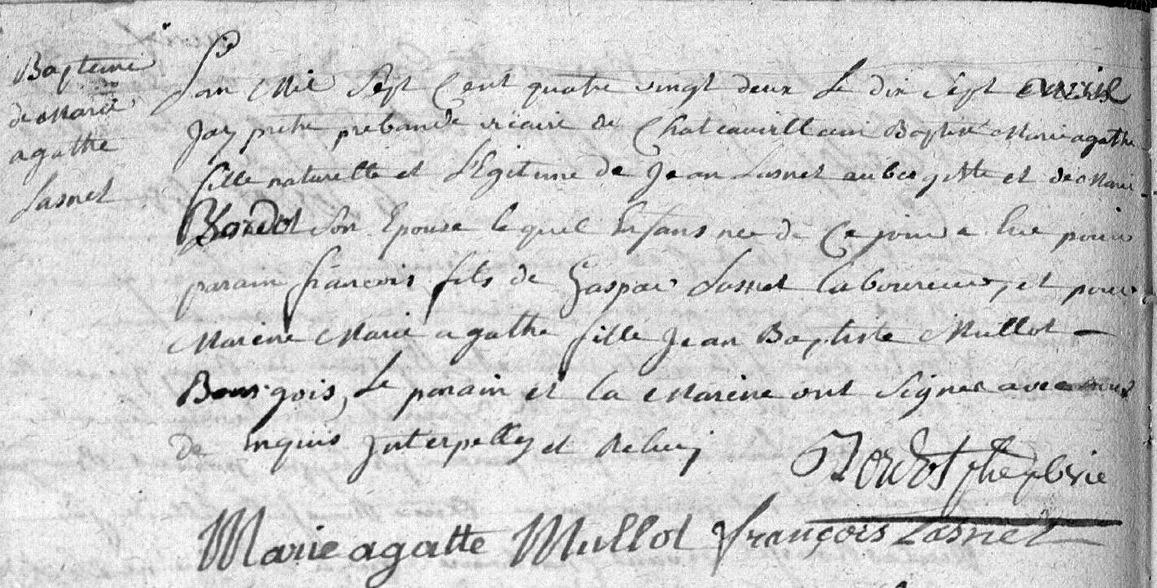 Bapteme
de Marie
agathe
Lasnet
Lan Mil Sept Cent quatre vingt deux Le dix Sept avril
Jay pretre prebandé vicaire de Chateauvillain Baptisé Marie agathe
fille naturelle et Legitime de Jean Lasnet aubergiste et de Marie
Bordot son Epouse lequel Enfans née de Ce jour a Eue pour
parain françois fils de Gaspar Lasnet laboureur, et pour
Marene Marie agathe fille Jean Baptiste Mullot
Bourgois, Le parain et la Marene ont Signer avec nous
de Enquis Interpelley et
Bordot
Marie agatte Mullot françois Lasnet